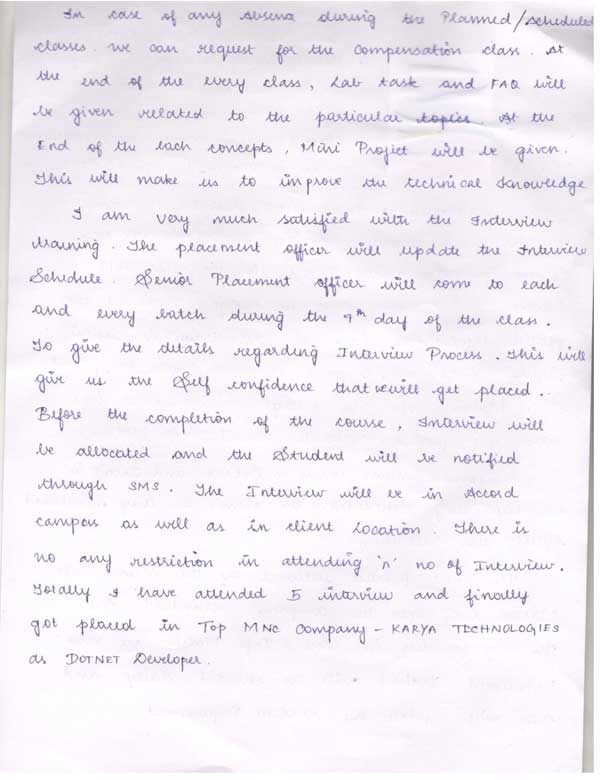 In case of any Absence during the Planned/scheduled
classes. we can request for the compensation class. At
the end of the every class, Lab task and FAQ will
be given related to the particular topics. At the
End of the each concepts, Mini Project will be given.
This will make us to improve the technical knowledge
I am very much satisfied with the Interview
training. The placement officer will update the Interview
Schedule. Senior Placement officer will come to each
and every batch during the 9th day of the class.
To give the details regarding Interview Process. This will
give us the Self confidence that we will get placed.
Before the completion of the course, Interview will
be allocated and the Student will be notified
through SMS. The Interview will be in Accord
campus as well as in client Location. There is
no any restriction in attending 'n' no of Interview.
Totally I have attended 5 interview and finally
got placed in Top MNC Company - KARYA TECHNOLOGIES
as DOTNET Developer.